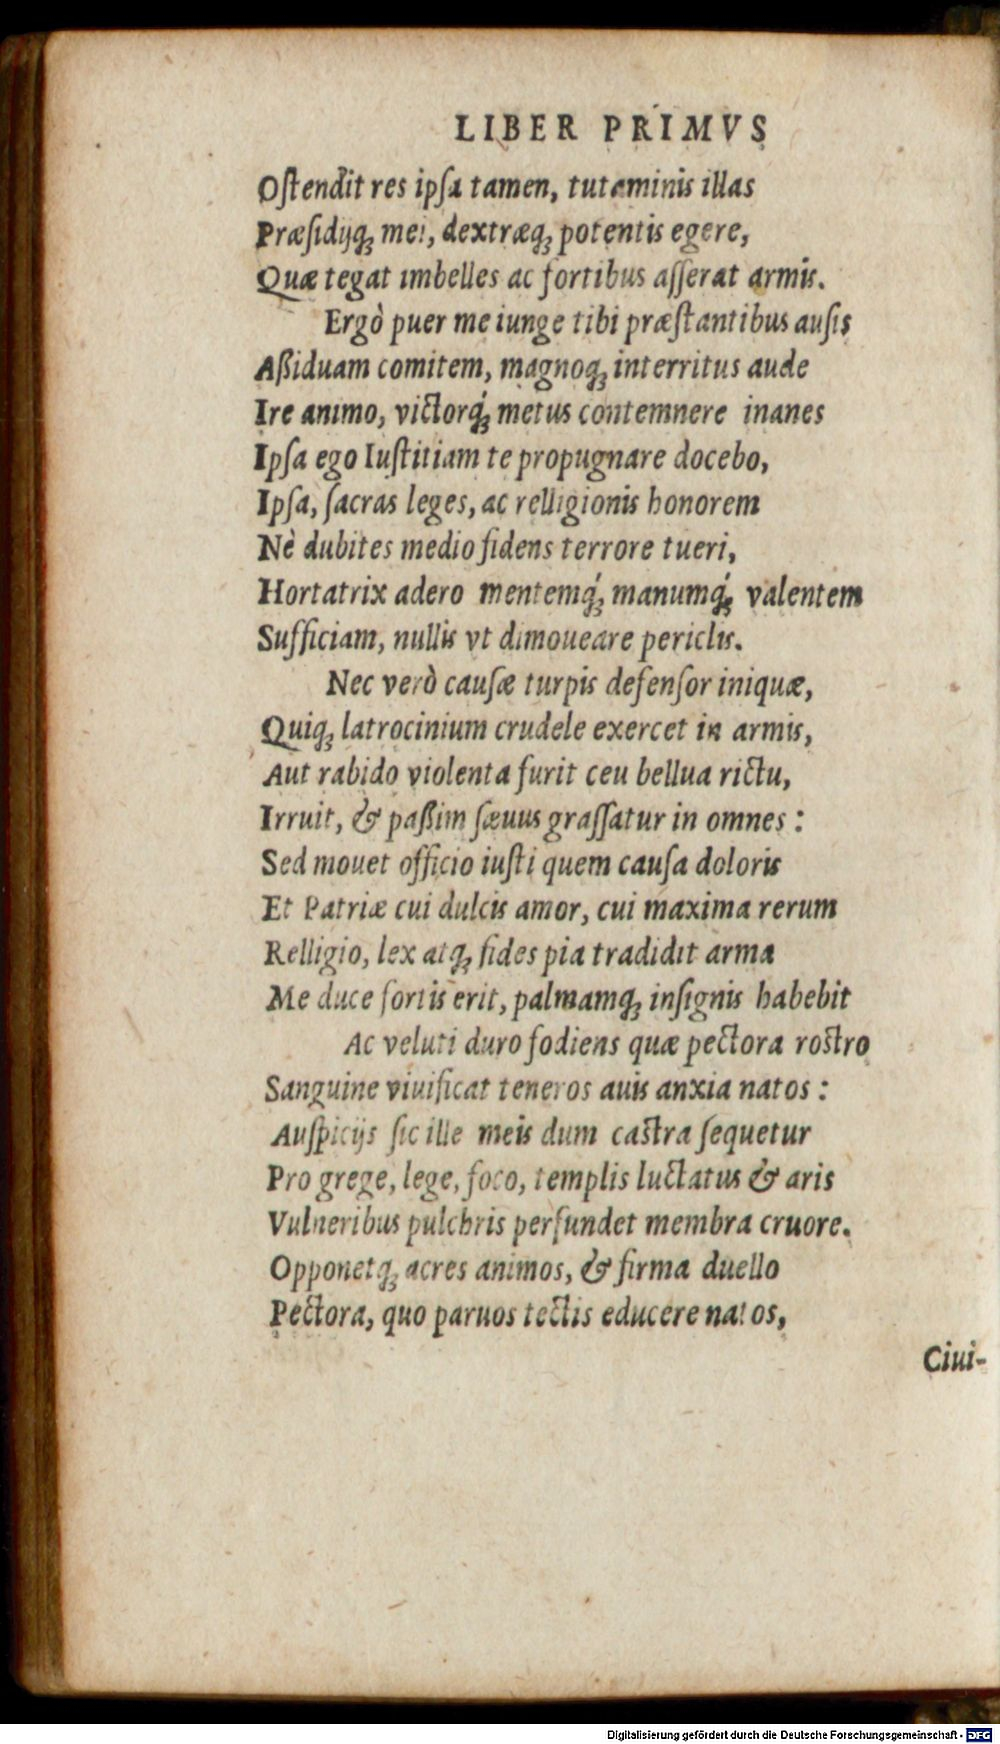 LIBER PRIMVS
Oſtendit res ipſa tamen, tutaminis illas
Præſidijq; mei, dextræq; potentis egere,
Quæ tegat imbelles ac fortibus aſſerat armis.
Ergò puer me iunge tibi præſtantibus auſis
Aßiduam comitem, magnoq; interritus aude
Ire animo, victorq́; metus contemnere inanes
Ipſa ego Iuſtitiam te propugnare docebo,
Ipſa, ſacras leges, ac relligionis honorem
Nè dubites medio fidens terrore tueri,
Hortatrix adero mentemq́; manumq́; valentem
Sufficiam, nullis vt dimoueare periclis.
Nec verò cauſæ turpis defenſor iniquæ,
Quiq; latrocinium crudele exercet in armis,
Aut rabido violenta furit ceu bellua rictu,
Irruit, & paßim ſæuus graſſatur in omnes:
Sed mouet officio iuſti quem cauſa doloris
Et Patriæ cui dulcis amor, cui maxima rerum
Relligio, lex atq; fides pia tradidit arma
Me duce fortis erit, palmamq; inſignis habebit
Ac veluti duro fodiens quæ pectora roſtro
Sanguine viuificat teneros auis anxia natos:
Auſpicijs ſic ille meis dum caſtra ſequetur
Pro grege, lege, foco, templis luctatus & aris
Vulneribus pulchris perfundet membra cruore.
Opponetq; acres animos, & firma duello
Pectora, quo paruos tectis educere natos,
Ciui-
Digitalisierung gefördert durch die Deutsche Forschungsgemeinschaft - DFG